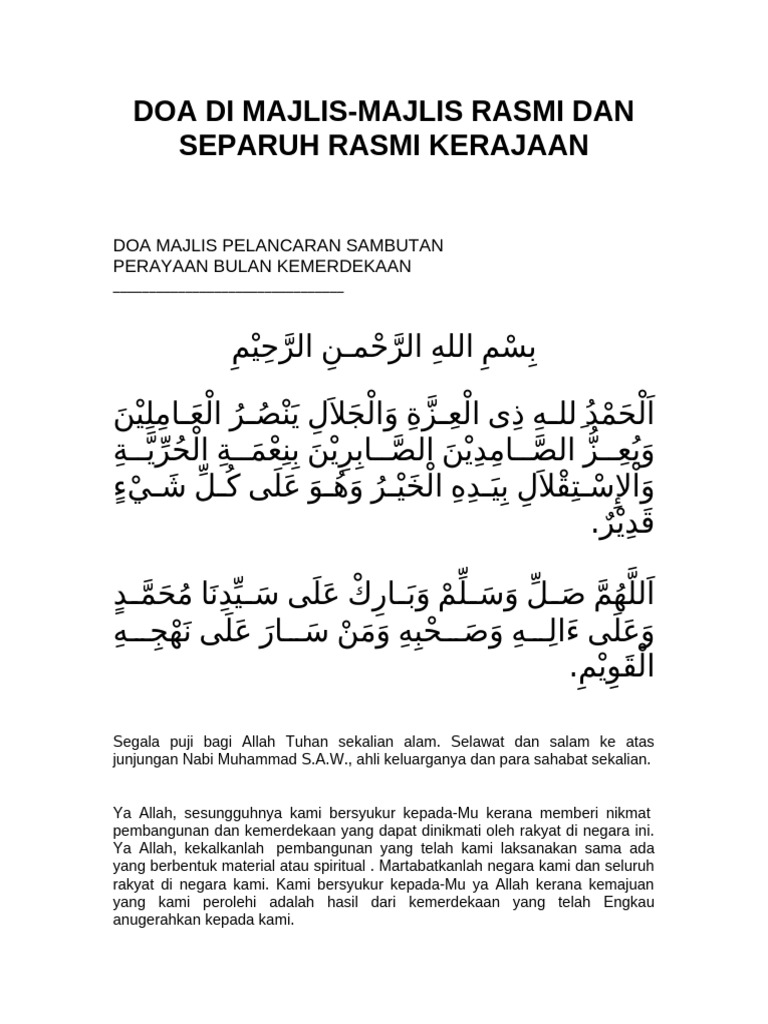 DOA DI MAJLIS-MAJLIS RASMI DAN
SEPARUH RASMI KERAJAAN
DOA MAJLIS PELANCARAN SAMBUTAN
PERAYAAN BULAN KEMERDEKAAN
________________________________
بِسْمِ اللهِ الرَّحْمـنِ الرَّحِيْمِ
اَلْحَمْدُ ِللـهِ ذِى الْعِـزَّةِ وَالْجَلاَلِ يَنْصُـرُ الْعَـامِلِيْنَ
وَيُعِــزُّ الصَّــامِدِيْنَ الصَّــابِرِيْنَ بِنِعْمَــةِ الْحُرِّيَّــةِ
وَاْلإِسْـتِقْلاَلِ بِيَـدِهِ الْخَيْـرُ وَهُـوَ عَلَى كُـلِّ شَـيْءٍ
قَدِيْرٌ.
اَللَّهُمَّ صَـلِّ وَسَـلِّمْ وَبَـارِكْ عَلَى سَـيِّدِنَا مُحَمَّـدٍ
وَعَلَى ءَالِـــهِ وَصَـــحْبِهِ وَمَنْ سَـــارَ عَلَى نَهْجِـــهِ
الْقَوِيْمِ.
Segala puji bagi Allah Tuhan sekalian alam. Selawat dan salam ke atas
junjungan Nabi Muhammad S.A.W., ahli keluarganya dan para sahabat sekalian.
Ya Allah, sesungguhnya kami bersyukur kepada-Mu kerana memberi nikmat
pembangunan dan kemerdekaan yang dapat dinikmati oleh rakyat di negara ini.
Ya Allah, kekalkanlah pembangunan yang telah kami laksanakan sama ada
yang berbentuk material atau spiritual . Martabatkanlah negara kami dan seluruh
rakyat di negara kami. Kami bersyukur kepada-Mu ya Allah kerana kemajuan
yang kami perolehi adalah hasil dari kemerdekaan yang telah Engkau
anugerahkan kepada kami.